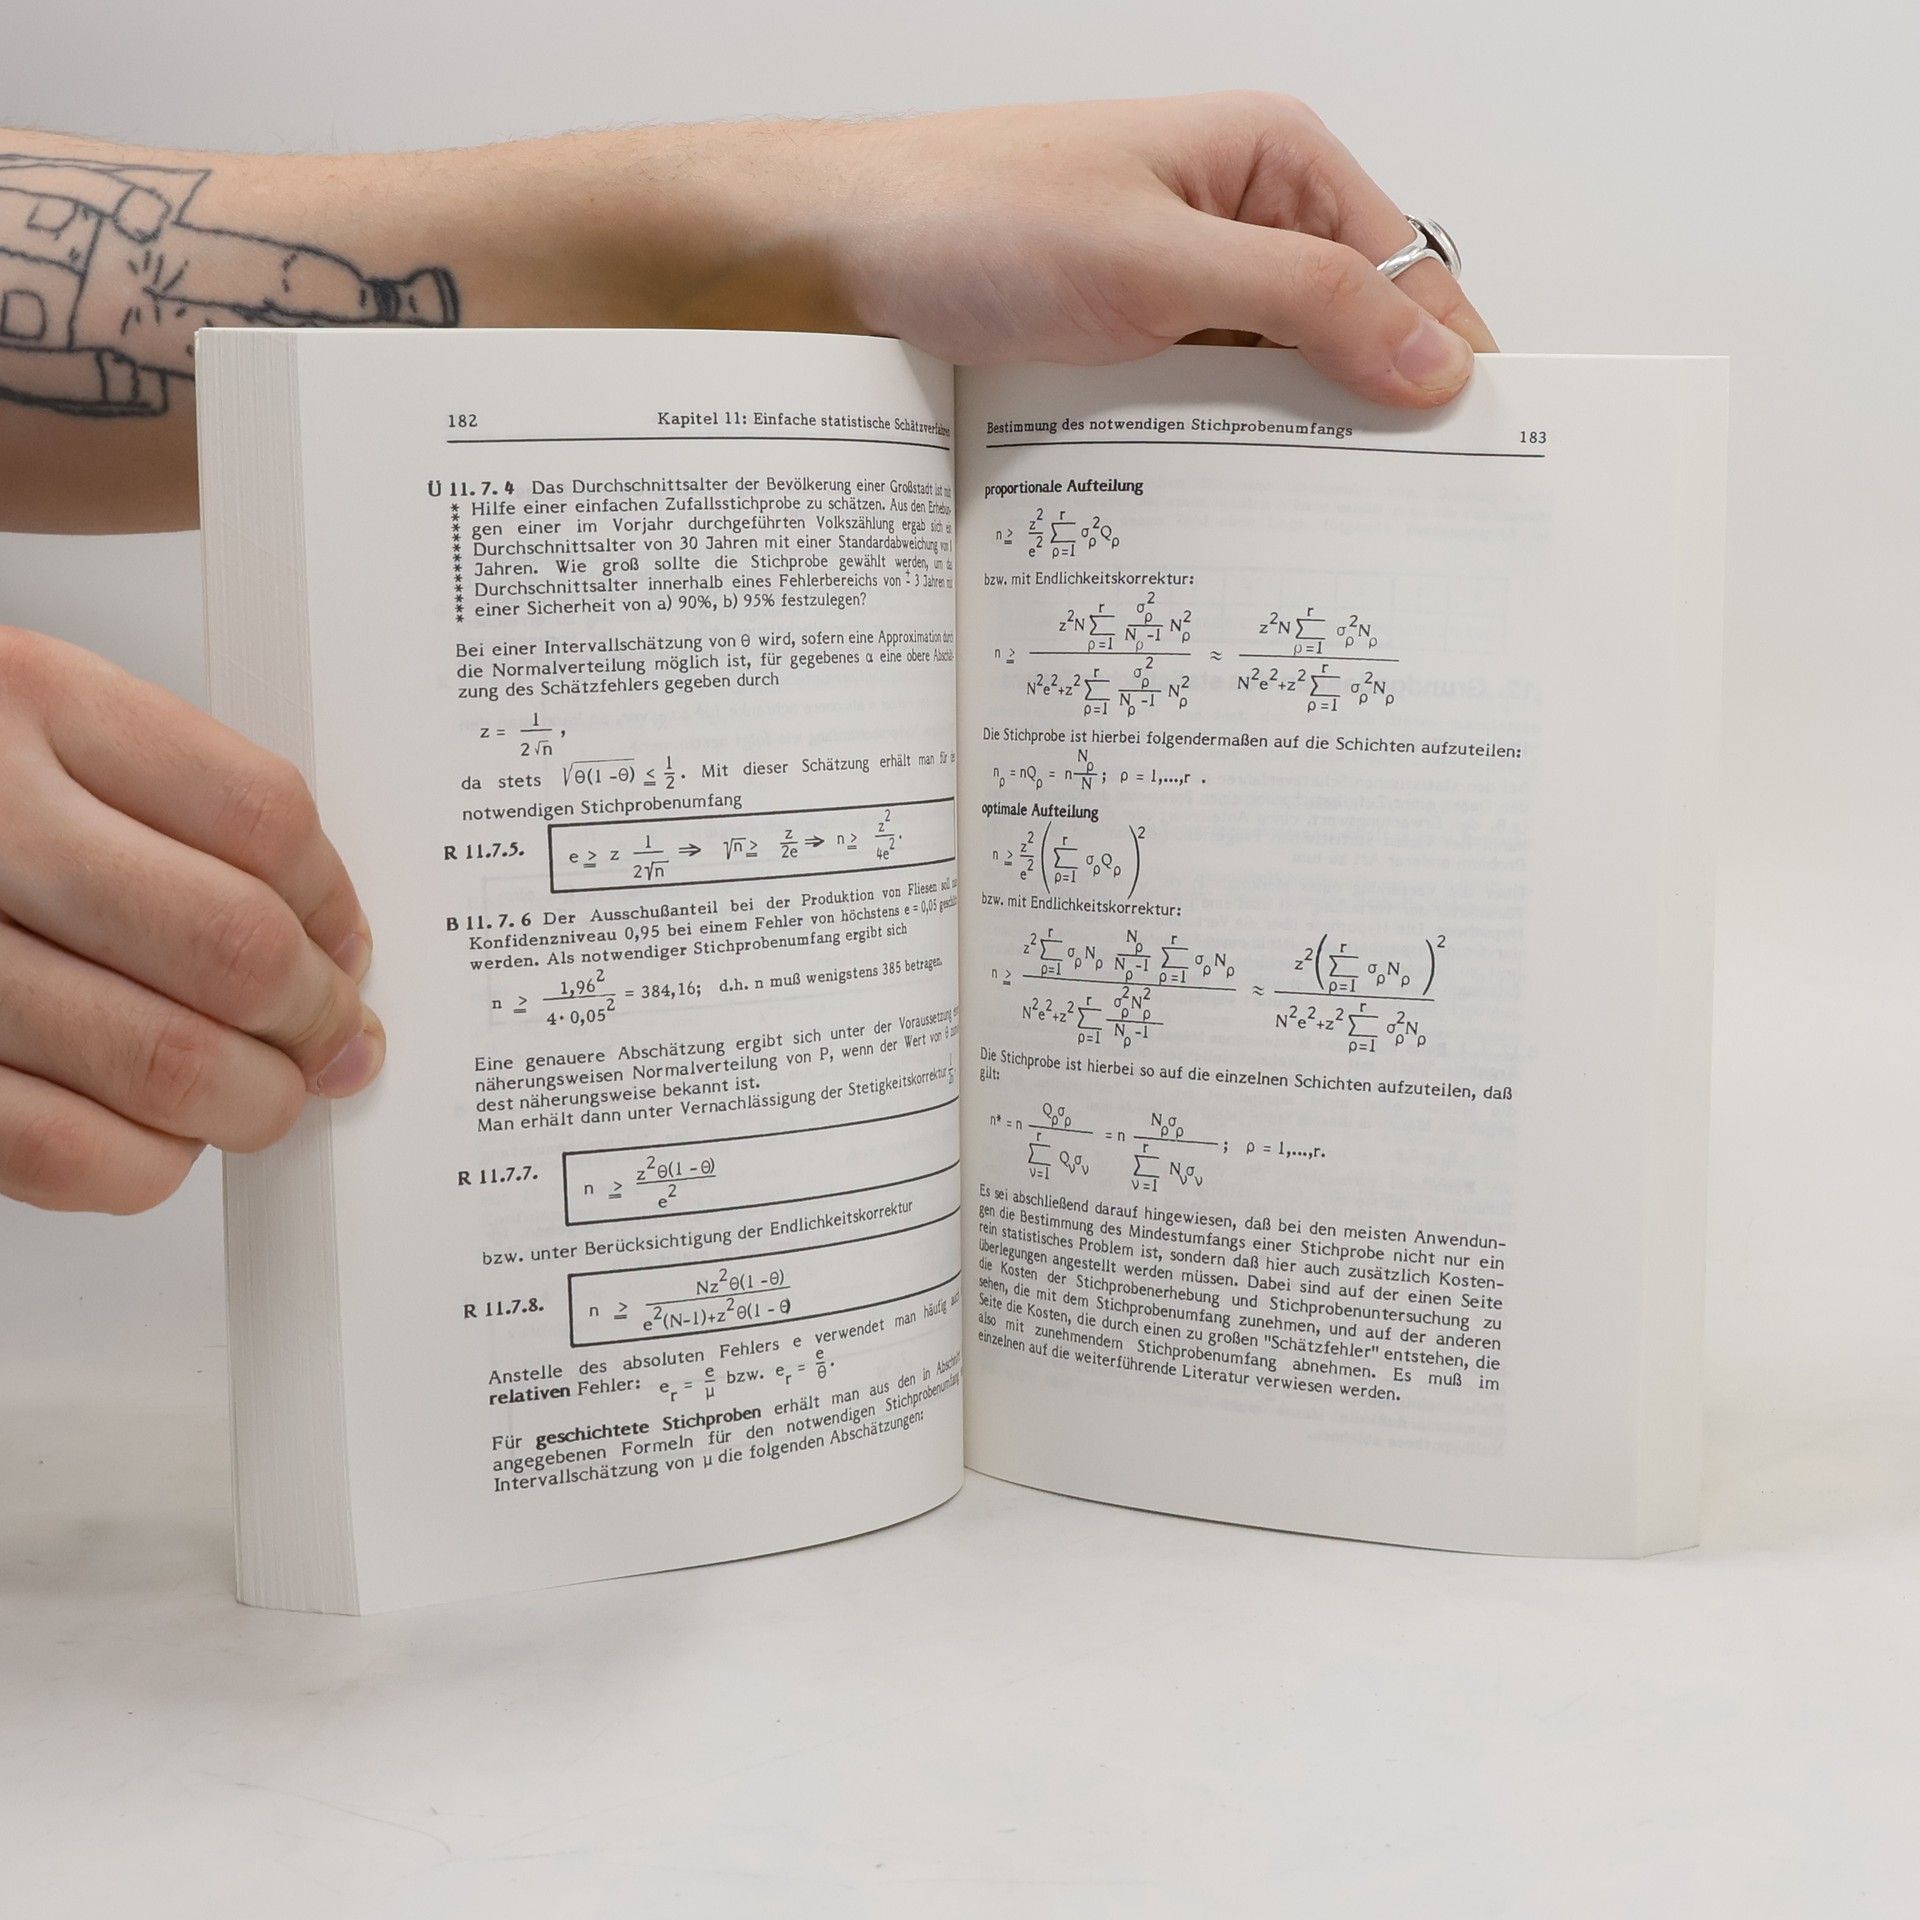 182 Kapitel 11: Einfache statistische Schätzverfahren
Ü 11.7.4 Das Durchschnittsalter der Bevölkerung einer Großstadt ist mit
* Hilfe einer einfachen Zufallsstichprobe zu schätzen. Aus den Erhebun-
* gen einer im Vorjahr durchgeführten Volkszählung ergab sich ein
* Durchschnittsalter von 30 Jahren mit einer Standardabweichung von
* Jahren. Wie groß sollte die Stichprobe gewählt werden, um das
* Durchschnittsalter innerhalb eines Fehlerbereichs von ± 3 Jahren mit
* einer Sicherheit von a) 90%, b) 95% festzulegen?
Bei einer Intervallschätzung von θ wird, sofern eine Approximation durch
die Normalverteilung möglich ist, für gegebenes α eine obere Abschät-
zung des Schätzfehlers gegeben durch
z = 1/(2√n) ,
da stets √(θ(1-θ)) ≤ 1/2. Mit dieser Schätzung erhält man für
notwendigen Stichprobenumfang
R 11.7.5. e ≥ z 1/(2√n) ⇒ √n ≥ z/2e ⇒ n ≥ z²/4e².
B 11.7.6 Der Ausschußanteil bei der Produktion von Fliesen soll
Konfidenzniveau 0,95 bei einem Fehler von höchstens e = 0,05 geschätzt
werden. Als notwendiger Stichprobenumfang ergibt sich
n ≥ 1,96²/(4·0,05²) = 384,16; d.h. n muß wenigstens 385 betragen.
Eine genauere Abschätzung ergibt sich unter der Voraussetzung
näherungsweisen Normalverteilung von P, wenn der Wert von θ
dest näherungsweise bekannt ist.
Man erhält dann unter Vernachlässigung der Stetigkeitskorrektur
R 11.7.7. n ≥ z²θ(1-θ)/e²
bzw. unter Berücksichtigung der Endlichkeitskorrektur
R 11.7.8. n ≥ Nz²θ(1-θ)/(e²(N-1)+z²θ(1-θ))
Anstelle des absoluten Fehlers e verwendet man häufig auch
relativen Fehler: e_r = e/μ bzw. e_r = e/θ.
Für geschichtete Stichproben erhält man aus den in Abschnitt
angegebenen Formeln für den notwendigen Stichprobenumfang
Intervallschätzung von μ die folgenden Abschätzungen:
Bestimmung des notwendigen Stichprobenumfangs 183
proportionale Aufteilung
n ≥ z²/e² Σ_{ρ=1}^{r} σ_ρ²Q_ρ
bzw. mit Endlichkeitskorrektur:
n ≥ (z²N Σ_{ρ=1}^{r} σ_ρ²/(N_ρ-1) N_ρ²)/(N²e²+z² Σ_{ρ=1}^{r} σ_ρ²/(N_ρ-1) N_ρ²) ≈ (z²N Σ_{ρ=1}^{r} σ_ρ²N_ρ)/(N²e²+z² Σ_{ρ=1}^{r} σ_ρ²N_ρ)
Die Stichprobe ist hierbei folgendermaßen auf die Schichten aufzuteilen:
n_ρ = nQ_ρ = n N_ρ/N ; ρ = 1,...,r .
optimale Aufteilung
n ≥ z²/e² (Σ_{ρ=1}^{r} σ_ρQ_ρ)²
bzw. mit Endlichkeitskorrektur:
n ≥ (z² Σ_{ρ=1}^{r} σ_ρN_ρ N_ρ/(N_ρ-1) Σ_{ρ=1}^{r} σ_ρN_ρ)/(N²e²+z² Σ_{ρ=1}^{r} σ_ρ²N_ρ²/(N_ρ-1)) ≈ z²(Σ_{ρ=1}^{r} σ_ρN_ρ)²/(N²e²+z² Σ_{ρ=1}^{r} σ_ρ²N_ρ)
Die Stichprobe ist hierbei so auf die einzelnen Schichten aufzuteilen, daß
gilt:
n* = n Q_ρσ_ρ/(Σ_{ν=1}^{r} Q_νσ_ν) = n N_ρσ_ρ/(Σ_{ν=1}^{r} N_νσ_ν) ; ρ = 1,...,r.
Es sei abschließend darauf hingewiesen, daß bei den meisten Anwendun-
gen die Bestimmung des Mindestumfangs einer Stichprobe nicht nur ein
rein statistisches Problem ist, sondern daß hier auch zusätzlich Kosten-
überlegungen angestellt werden müssen. Dabei sind auf der einen Seite
die Kosten der Stichprobenerhebung und Stichprobenuntersuchung zu
sehen, die mit dem Stichprobenumfang zunehmen, und auf der anderen
Seite die Kosten, die durch einen zu großen "Schätzfehler" entstehen, die
also mit zunehmendem Stichprobenumfang abnehmen. Es muß im
einzelnen auf die weiterführende Literatur verwiesen werden.